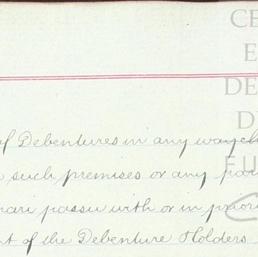 CE
E
DE
D
of Debentures in any way ch
such premises or any par
pari passu with or in priori
of the Debenture Holders